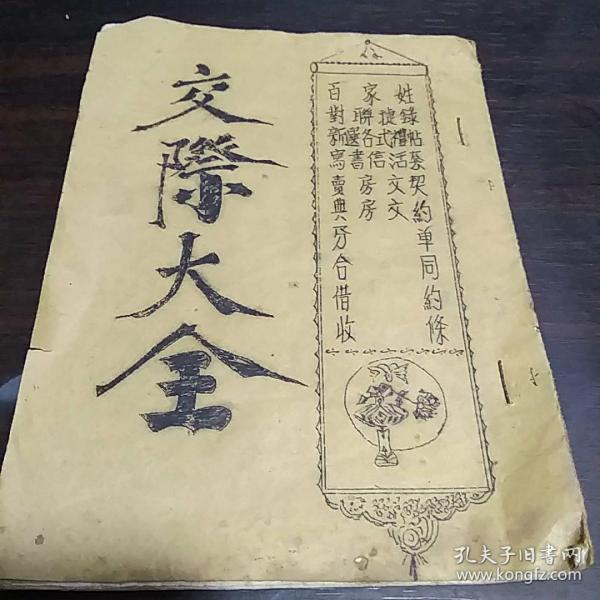 交際大全
百家姓
對聯捷錄
新選各式禮帖
寫書信活
賣房文契
典房文約
分單
合同
借約
收條
孔夫子旧书网
www.kongfz.com